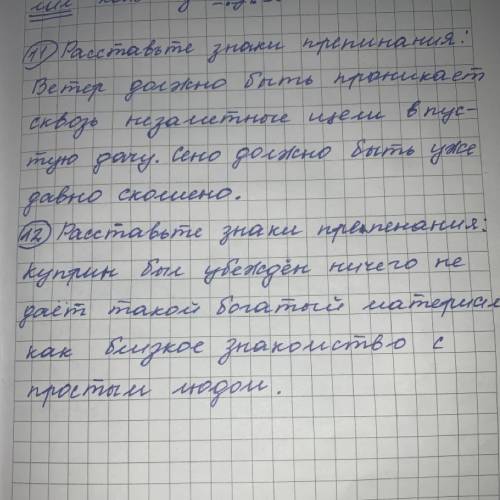 11 Расставьте знаки препинания:
Ветер должно быть проникает
сквозь незаметные щели в пус-
тую дачу. Сено должно быть уже
давно скошено.
12 Расставьте знаки препенания:
Куприн был убеждён ничего не
даёт такой богатый материал
как близкое знакомство с
простым людом.